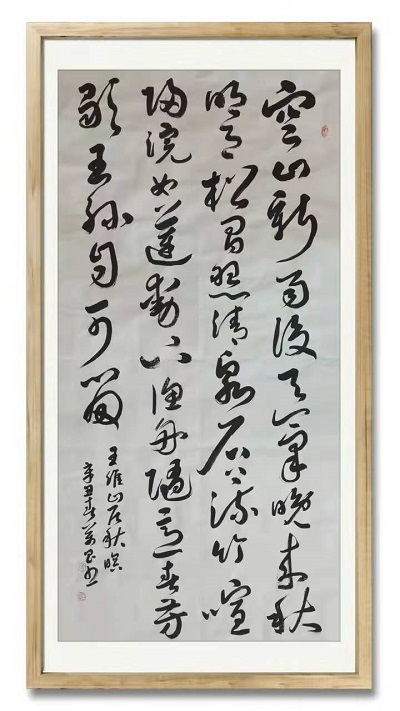 空山新雨後天氣晚来秋
明月松間照清泉石上流竹喧
歸浣女蓮動下漁舟隨意春芳
歇王孫自可留
王維山居秋暝
辛丑